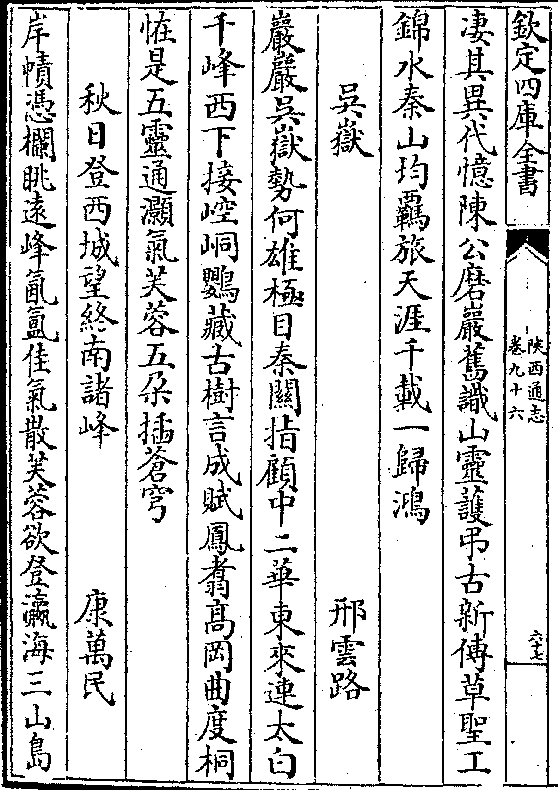 欽定四庫全書
陜西通志
卷九十六
六七
凄其異代憶陳公磨巖舊識山靈護弔古新傳草聖工
錦水秦山均羈旅天涯千載一歸鴻
吳嶽 邢雲路
巖巖吳嶽勢何雄極目秦關指顧中二華東來連太白
千峰西下接崆峒鸚藏古樹言成賦鳳翥髙岡曲度桐
恠是五靈通灝氣芙蓉五朶插蒼穹
秋日登西城望終南諸峰 康萬民
岸幘憑欄眺遠峰氤氲佳氣散芙蓉欲登瀛海三山島